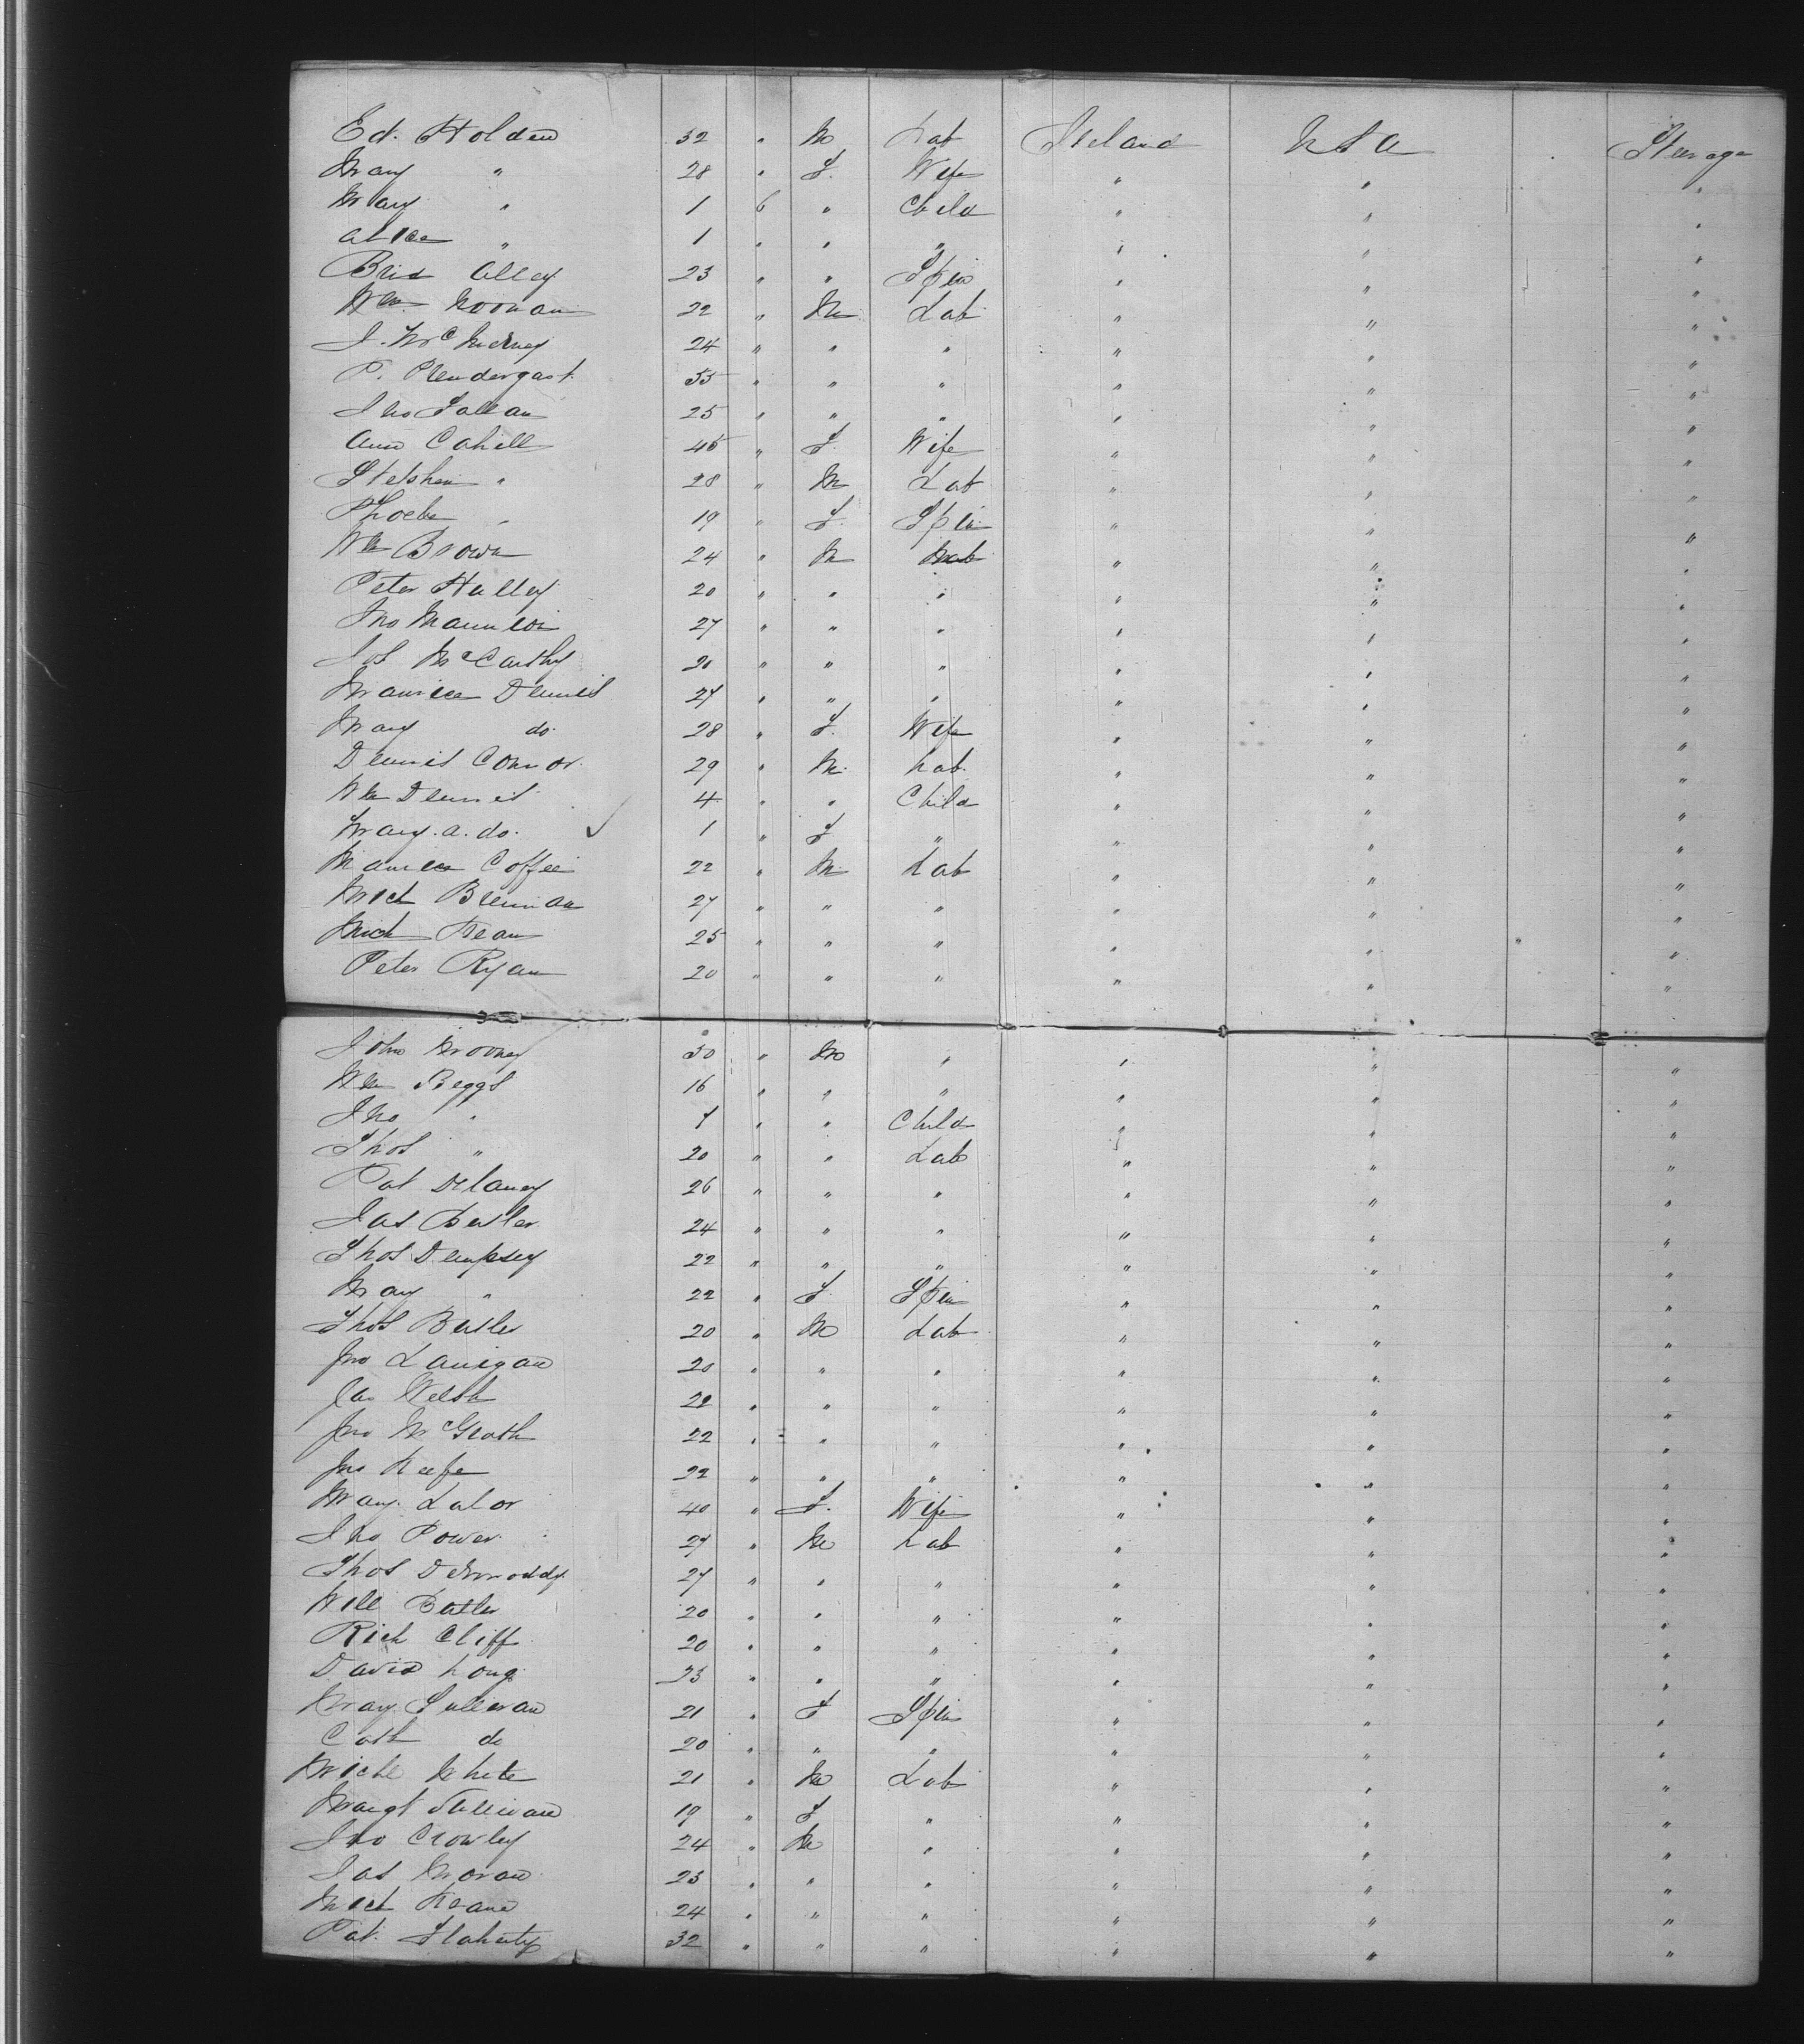 Ed. Holden 32 " M Lab Ireland U S A Steerage
Mary " 28 " F. Wife " " "
Mary " 1 6 " Child " " "
Alice " 1 " " " " " "
Brid Alley 23 " " Spin " " "
Wm. Noonan 22 " M Lab " " "
J. McInerney 24 " " " " " "
P. Prendergast 35 " " " " " "
Jno 25 " " " " " "
Ann Cahill 45 " F. Wife " " "
Stephen " 28 " M Lab " " "
Phoebe " 19 " F. Spin " " "
Wm Brown 24 " M Lab " " "
Peter Halley 20 " " " " " "
Jno Mannion 27 " " " " " "
Jos McCarthy 20 " " " " " "
Maurice Dennis 27 " " " " " "
Mary do. 28 " F. Wife " " "
Dennis Connor. 29 " M. Lab. " " "
Wm Dennis 4 " " Child " " "
Mary. A. do. 1 " F " " " "
Maurice Coffee 22 " M Lab " " "
Mich Brennan 27 " " " " " "
Mich Kean 25 " " " " " "
Peter Ryan 20 " " " " " "
John Mooney 30 " M " " " "
Wm Beggs 16 " " " " " "
Jno " 7 " " Child " " "
Thos " 20 " " Lab " " "
Pat Delaney 26 " " " " " "
Jas Butler 24 " " " " " "
Thos Dempsey 22 " " " " " "
Mary " 22 " F. Spin " " "
Thos Butler 20 " M Lab " " "
Jno Lanigan 20 " " " " " "
Jas Welsh 22 " " " " " "
Jno McGrath 22 " " " " " "
Jno Keefe 22 " " " " " "
Mary. Lalor 40 " F. Wife " " "
Jno Power. 27 " M Lab " " "
Thos Dermoddy 27 " " " " " "
Will Butler 20 " " " " " "
Rich Cliff 20 " " " " " "
David Long. 23 " " " " " "
Mary Sullivan 21 " F Spin " " "
Cath do 20 " " " " " "
Michl White 21 " M Lab " " "
Margt Sullivan 19 " F " " " "
Jno Crowley 24 " M " " " "
Jas Moran 23 " " " " " "
Mich Keane 24 " " " " " "
Pat. Flaherty 32 " " " " " "